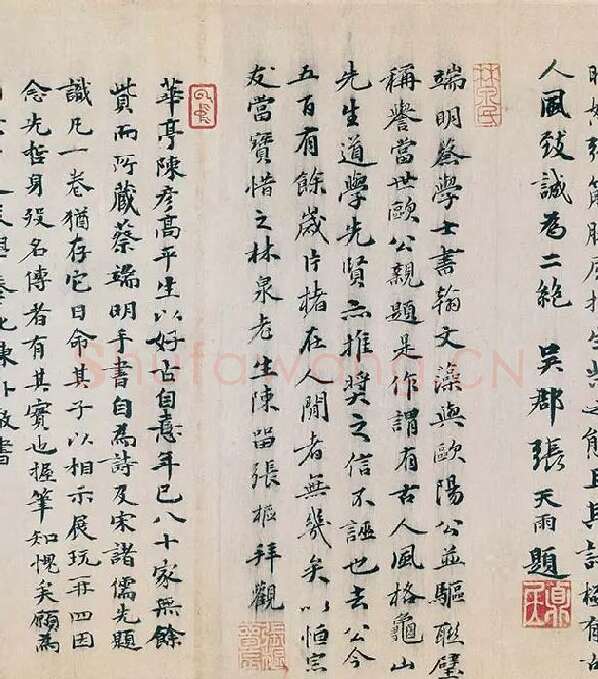 之能且其詩極有古
人風致誠為二絕 吳郡張天雨題
端明蔡學士書翰文藻與歐陽公並驅聯璧
稱譽當世歐公親題是作謂有古人風格龜山
先生道學先賢亦推奬之信不誣也去公今
五百有餘歲片楮在人間者無幾矣以恒宗
友當寶惜之林泉老生陳留張樞拜觀
華亭陳彥高平生以好古自意年已八十家無餘
貲而所藏蔡端明手書自為詩及宋諸儒先題
識凡一卷猶存它日命其子以相示展玩再四因
念先哲身歿名傳者有其實也握筆知愧矣顧為
敬書
Shufawang.CN